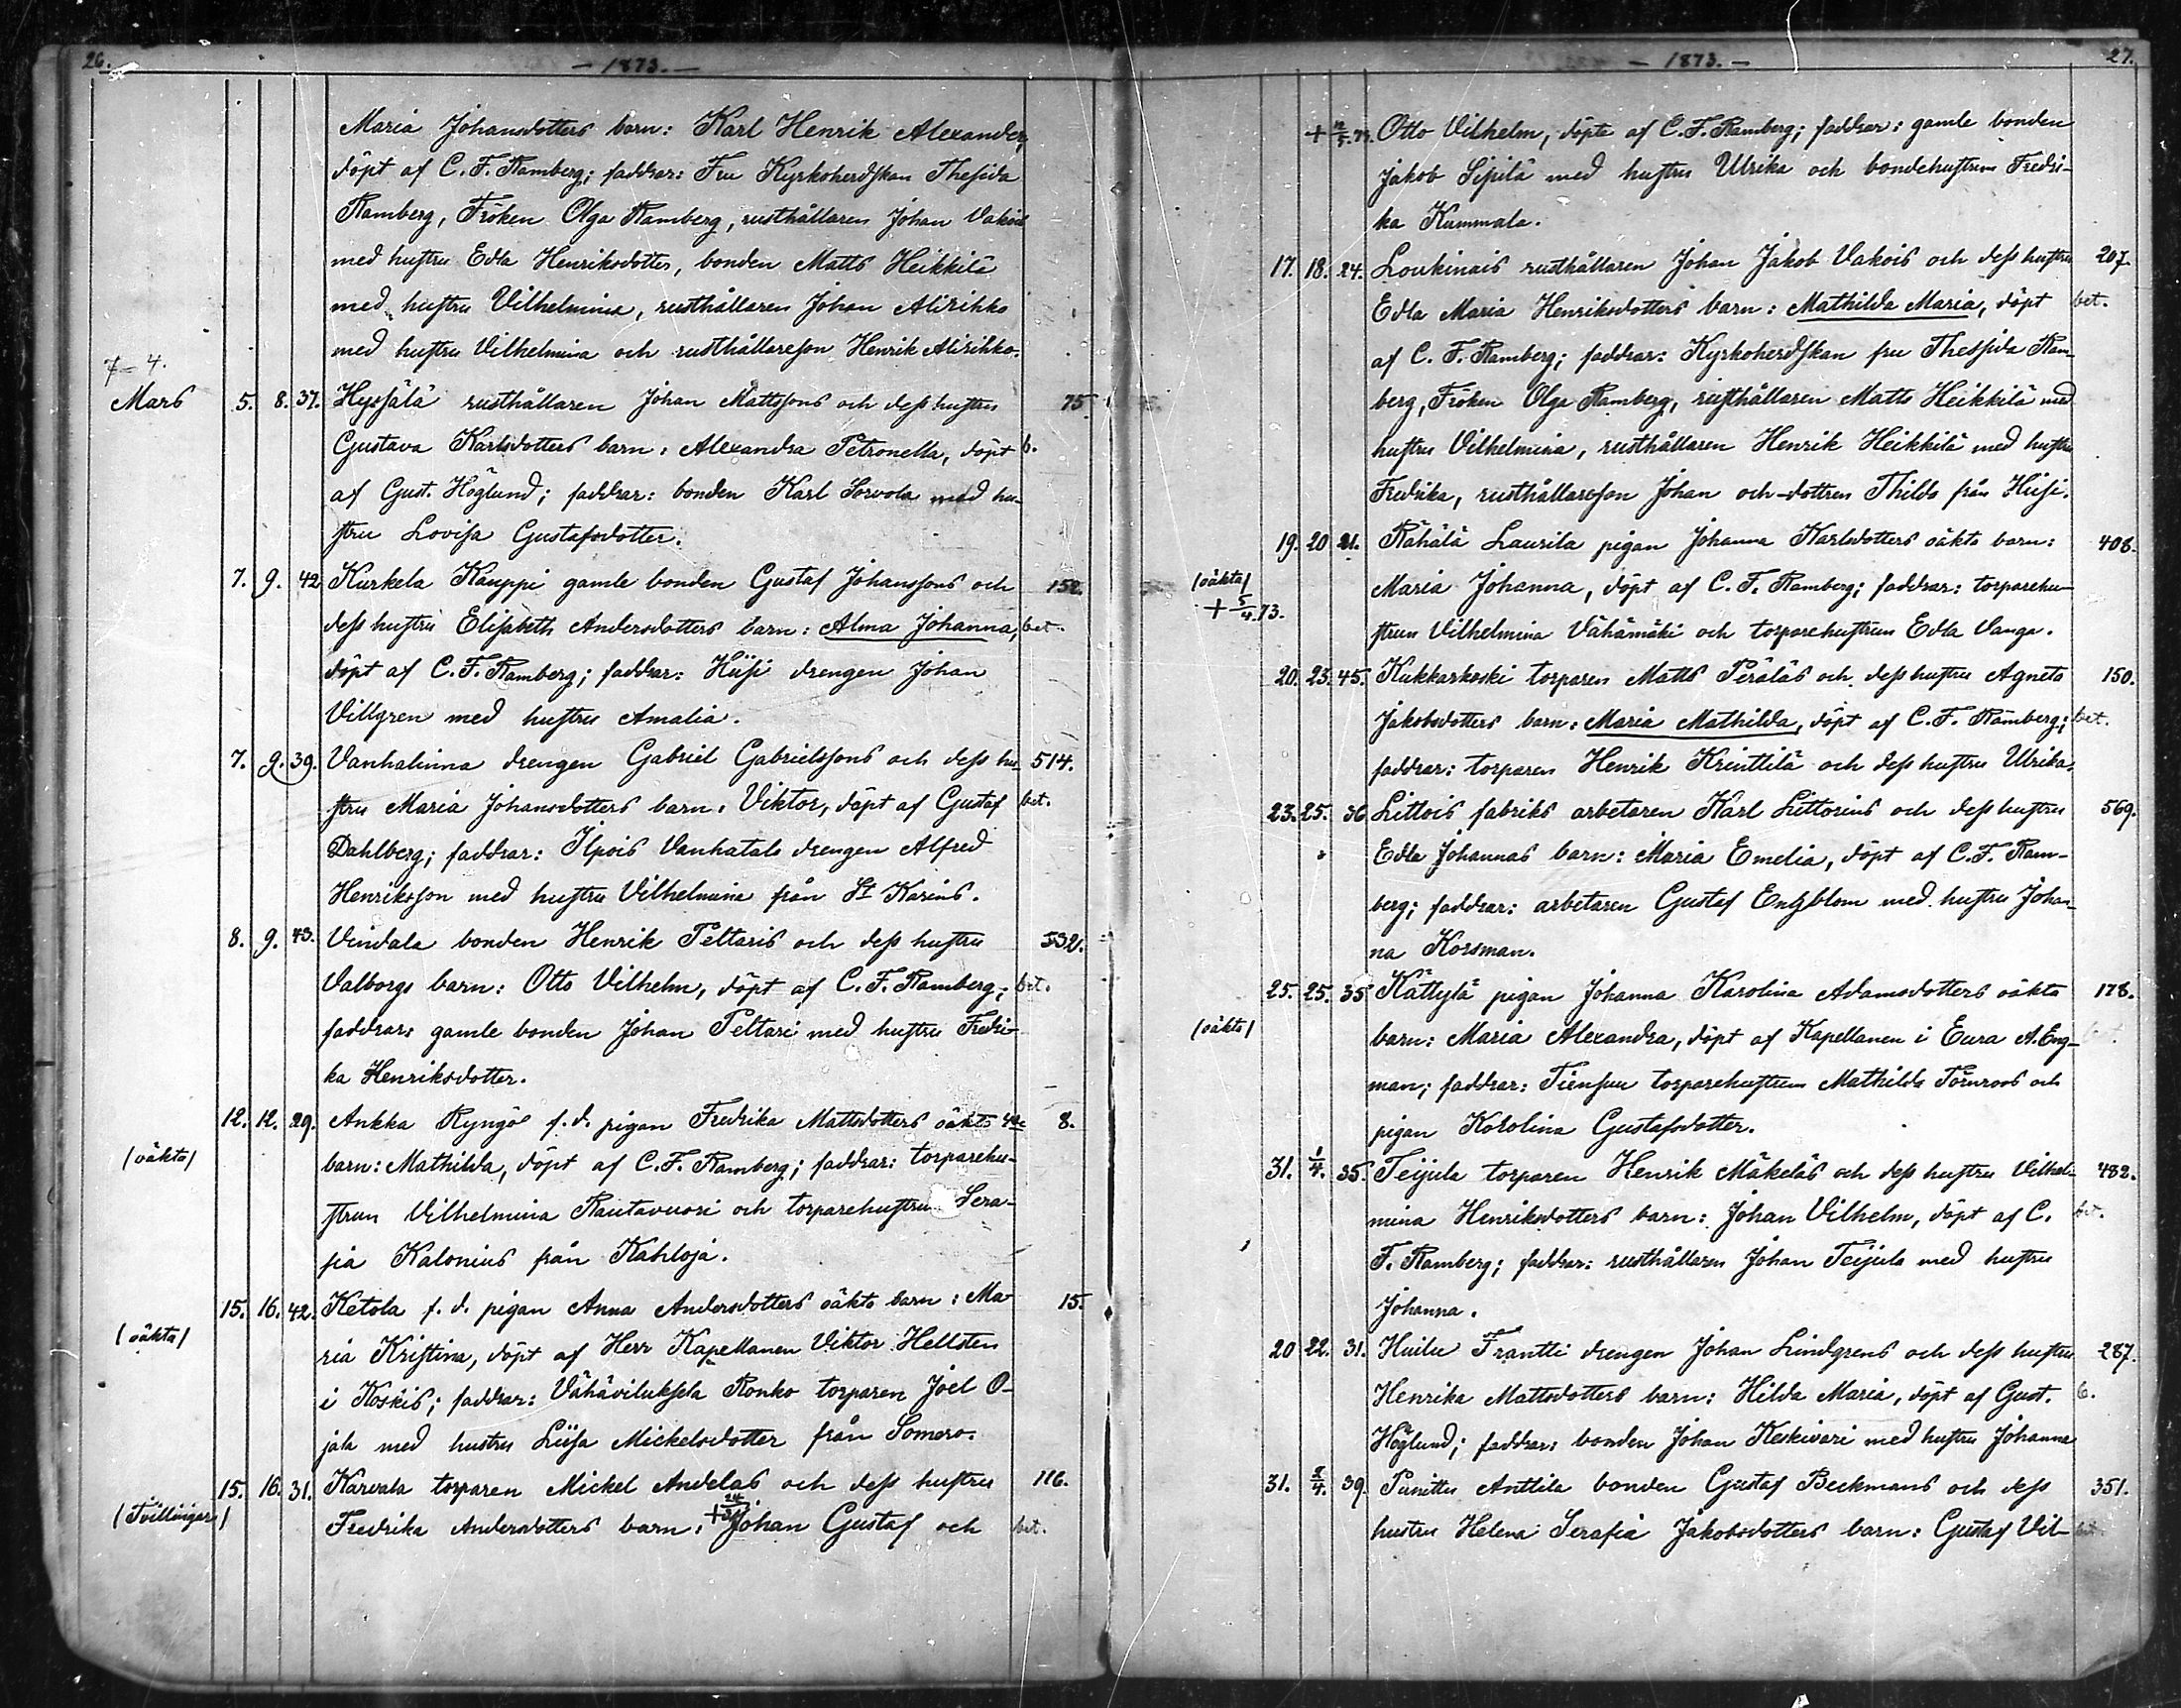 26. - 1873. -
Maria Johansdotters barn: Karl Henrik Alexander,
döpt af C. F. Ramberg; faddrar: Fru Kyrkoherdskan Thesida
Ramberg, Fröken Olga Ramberg, rusthållaren Johan Vakois
med hustru Edla Henriksdotter, bonden Matts Heikkilä
med hustru Vilhelmina, rusthållaren Johan Alirihko
med hustru Vilhelmina och rusthållareson Henrik Alirihko.
7-4.
Mars 5. 8. 37. rusthållaren Johan Mattssons och dess hustru 75.
Gustava Karlsdotters barn: Alexandra Petronella, döpt b.
af Gust. Höglund; faddrar: bonden Karl Sorvola med hu-
stru Lovisa Gustafsdotter.
7. 9. 42 Kurkela Kauppi gamle bonden Gustaf Johanssons och 152.
dess hustru Elisabeth Andersdotters barn: Alma Johanna, bet.
döpt af C. F. Ramberg; faddrar: Hiisi drengen Johan
Villgren med hustru Amalia.
7. 9. 39. Vanhalinna drengen Gabriel Gabrielssons och dess hu- 514.
stru Maria Johansdotters barn: Viktor, döpt af Gustaf bet.
Dahlberg; faddrar: Ilpois Vanhatalo drengen Alfred
Henriksson med hustru Vilhelmina från St Karins.
8. 9. 43. Vindala bonden Henrik Peltaris och dess hustru 532.
Valborgs barn: Otto Vilhelm, döpt af C. F. Ramberg; bet.
faddrar: gamle bonden Johan Peltari med hustru Fredri-
ka Henriksdotter.
12. 12. 29. Ankka Ryngö f. d. pigan Fredrika Mattsdotters oäkta 8.
(oäkta) barn: Mathilda, döpt af C. F. Ramberg; faddrar: torparehu-
strun Vilhelmina Rautavuori och torparehustrun Sera-
fia Kalonius från Kahloja.
15. 16. 42. Ketola f. d. pigan Anna Andersdotters oäkta barn: Ma- 15.
(oäkta) ria Kristina, döpt af Herr Kapellanen Viktor Hellsten
i Koskis; faddrar: Vähäviluksela Ronko torparen Joel O-
jala med hustru Liisa Mickelsdotter från Somero.
15. 16. 31. Karvala torparen Mickel Andelas och dess hustru 116.
(Tvillingar) Fredrika Andersdotters barn: Johan Gustaf och bet.
- 1873. - 27.
Otto Vilhelm, döpte af C. F. Ramberg; faddrar: gamle bonden
Jakob Sipilä med hustru Ulrika och bondehustrun Fredri-
ka Kummala.
17. 18. 24. Loukinais rusthållaren Johan Jakob Vakois och dess hustru 207.
Edla Maria Henriksdotters barn: Mathilda Maria, döpt bet.
af C. F. Ramberg; faddrar: Kyrkoherdskan fru Thessida Ram-
berg, Fröken Olga Ramberg, rusthållaren Matts Heikkilä med
hustru Vilhelmina, rusthållaren Henrik Heikkilä med hustru
Fredrika, rusthållareson Johan och -dottren Thilda från Hiisi.
19. 20 21. Rähälä Laurila pigan Johanna Karlsdotters oäkta barn: 408.
(oäkta) Maria Johanna, döpt af C. F. Ramberg; faddrar: torparehu-
+ 5/4.73. strun Vilhelmina Vähämäki och torparehustrun Edla Vanga.
20. 23. 45. Kukkarkoski torparen Matts Peräläs och dess hustru Agneta 150.
Jakobsdotters barn: Maria Mathilda, döpt af C. F. Ramberg; bet.
faddrar: torparen Henrik Krinttilä och dess hustru Ulrika.
23. 25. 36 Littois fabriks arbetaren Karl Littorins och dess hustru 569.
Edla Johannas barn: Maria Emelia, döpt af C. F. Ram-
berg; faddrar: arbetaren Gustaf Engblom med hustru Johan-
na Korsman.
25. 25. 35 Kättylä pigan Johanna Karolina Adamsdotters oäkta 178.
(oäkta) barn: Maria Alexandra, döpt af Kapellanen i Eura A. Eng-
man; faddrar: torparehustrun Mathilda Törnroos och
pigan Karolina Gustafsdotter.
31. 1/4. 35. Teijula torparen Henrik Mäkeläs och dess hustru Vilhel- 482.
mina Henriksdotters barn: Johan Vilhelm, döpt af C. bet.
F. Ramberg; faddrar: rusthållaren Johan Teijula med hustru
Johanna.
20 22. 31. Huilu Frantti drengen Johan Lindgrens och dess hustru 287.
Henrika Mattsdotters barn: Hilda Maria, döpt af Gust. b.
Höglund; faddrar: bonden Johan Keskivari med hustru Johanna
31. 39. Punittu Anttila bonden Gustaf Beckmans och dess 351.
hustru Helena Serafia Jakobsdotters barn: Gustaf Vil-